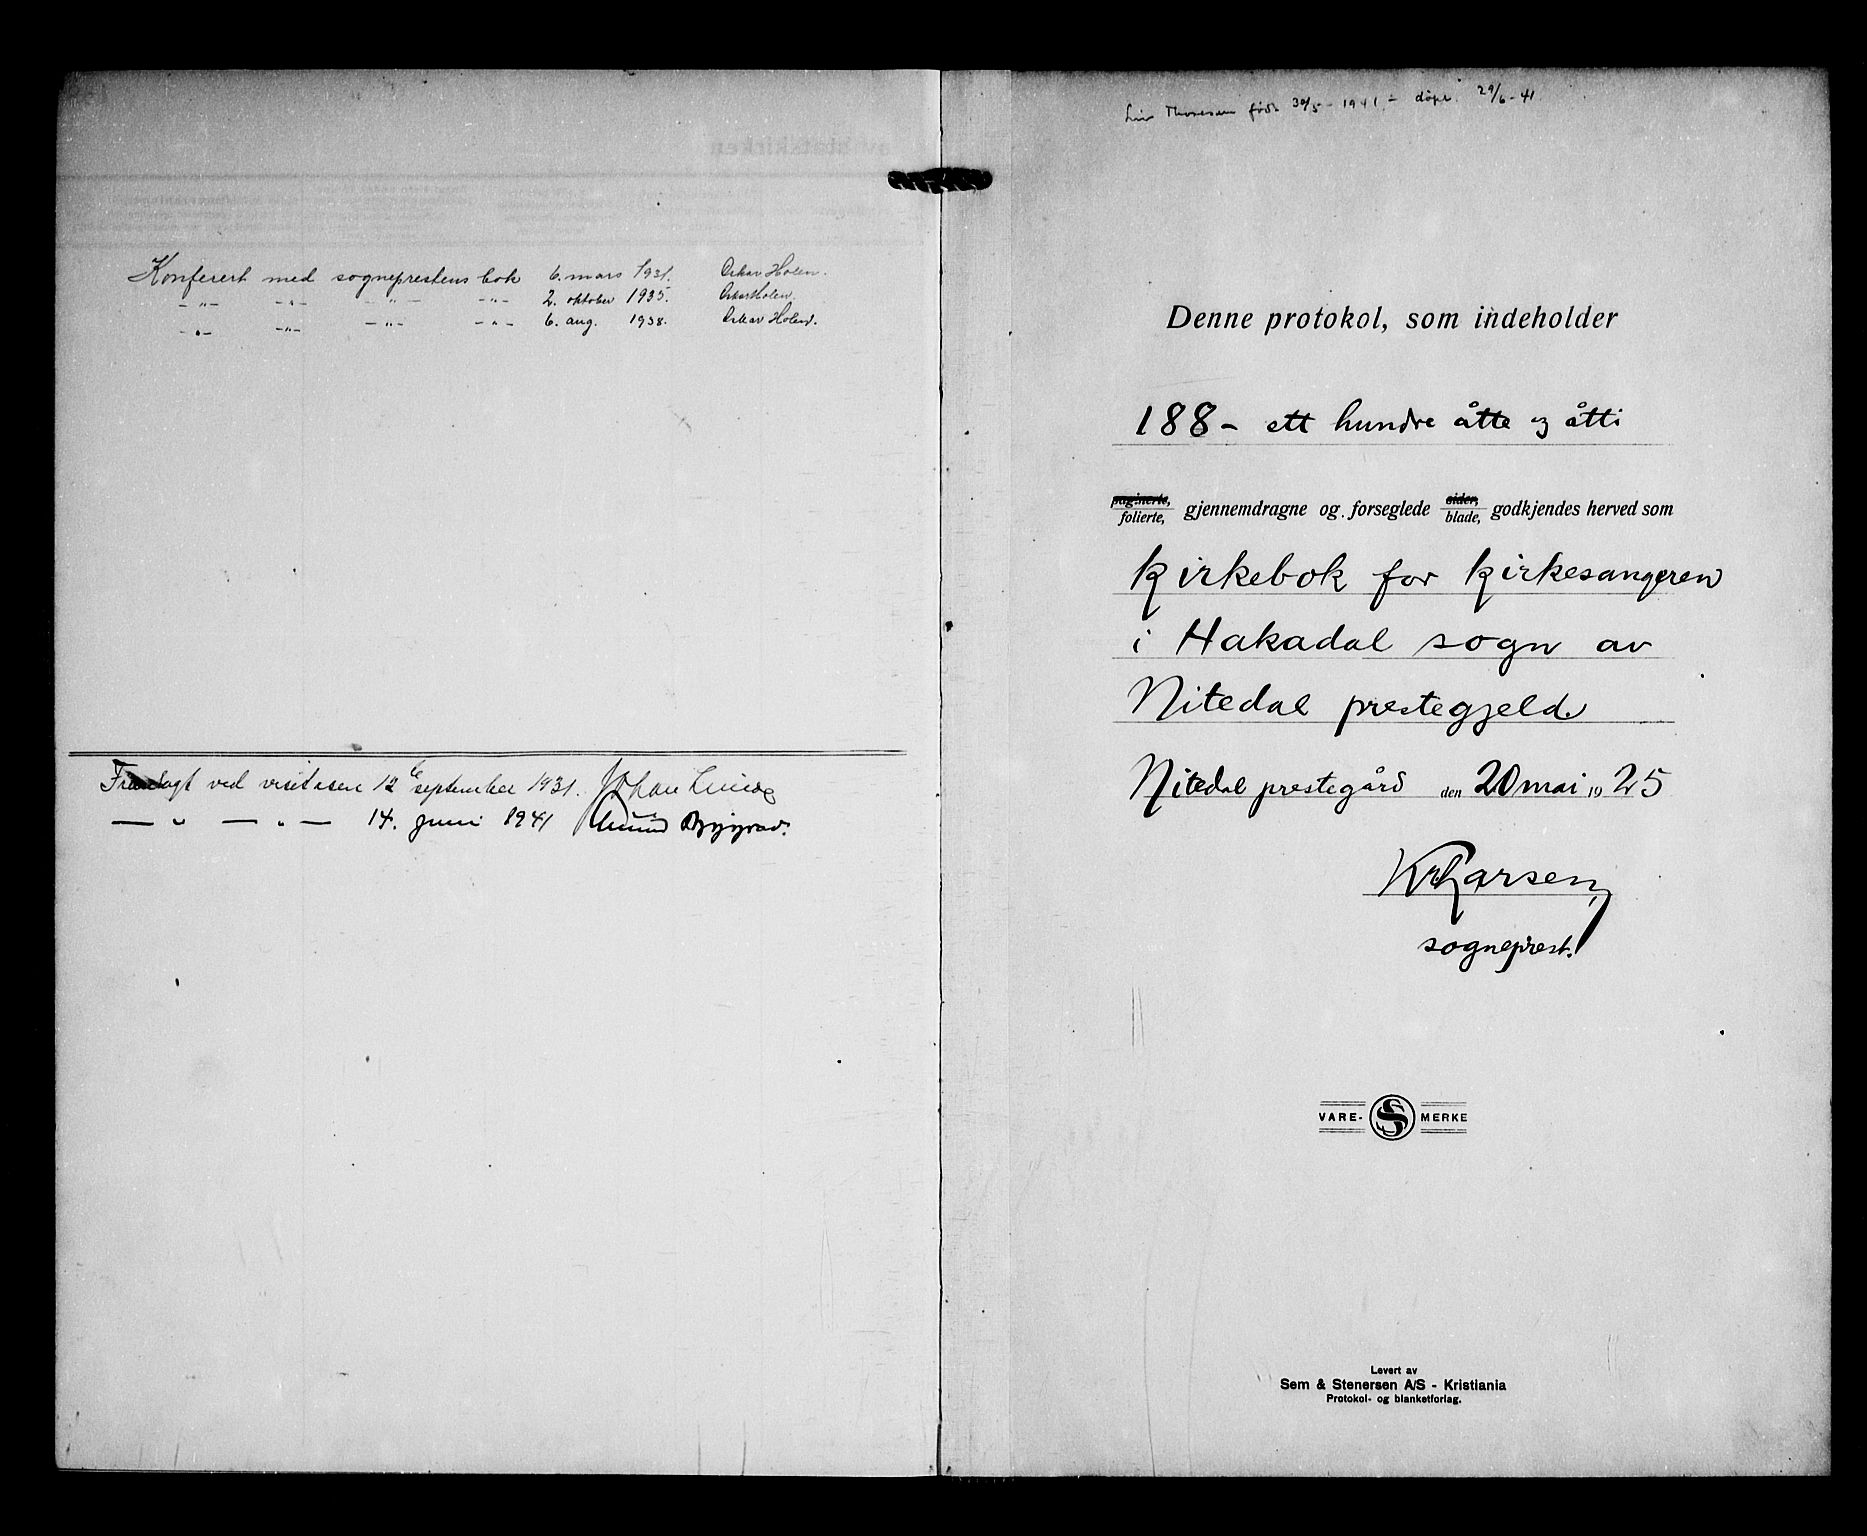 av statskirken
Konferert med sogneprestens bok 6. mars 1931. Oskar Holen.
-"- -"- -"- -"- 2. oktober 1935. Oskar Holen.
-"- -"- -"- -"- 6. aug. 1938. Oskar Holen.
Fremlagt ved visitasen 12 september 1931. Johan Lunde
— " — " — 14. juni 1941
Liv Thoresen født 30/5 - 1941. - døpt 29/6 - 41
Denne protokol, som indeholder
188 - ett hundre åtte og åtti
paginerte, sider,
folierte, gjennemdragne og forseglede blade, godkjendes herved som
Kirkebok for kirkesangeren
i Hakadal sogn av
Nitedal prestegjeld
Nitedal prestegård den 20 mai 1925
Kr Larsen
sogneprest.
VARE- S MERKE
Levert av
Sem & Stenersen A/S - Kristiania
Protokol- og blanketforlag.